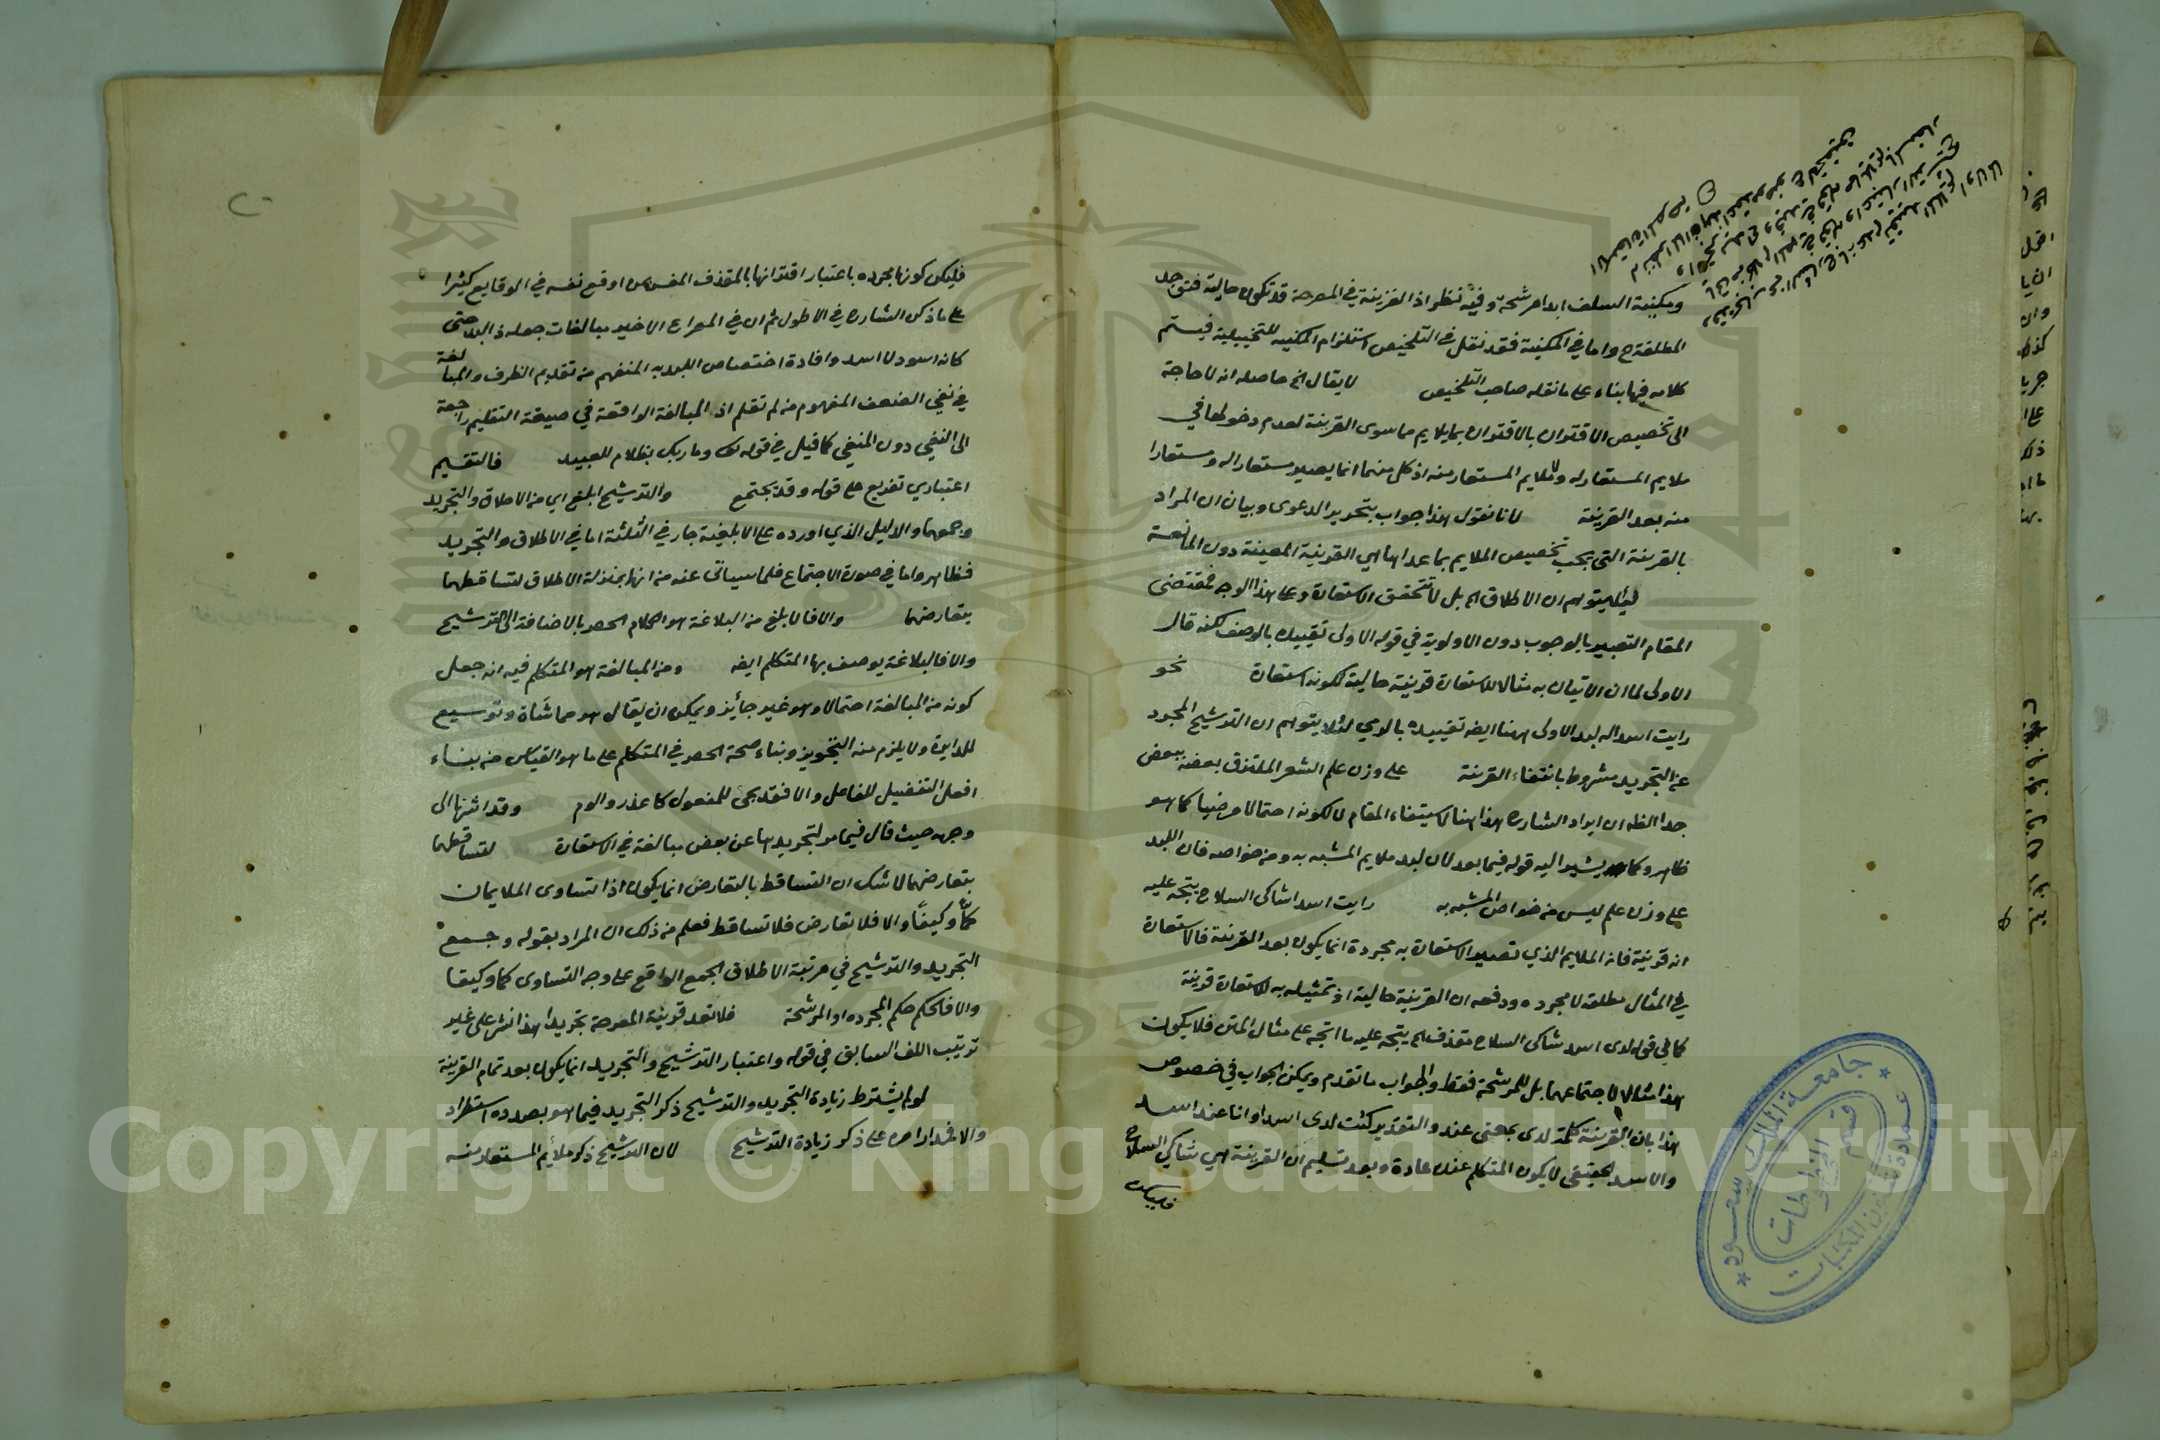 ومكنية السلف ابدا مرشحة وفيه نظر اذ القرينة في المصرحة قد تكون حالية فتوجد
المطلقة ح واما في المكنية فقد نقل في التلخيص استلزام المكنية للتخييلية فيتم
كلامه فيها بناء على ما نقله صاحب التلخيص لا يقال الخ حاصله انه لا حاجة
الى تخصيص الاقتران بالاقتران بما يلايم ما سوى القرينة لعدم دخولها في
ملايم المستعار له ولا ملايم المستعار منه اذ كل منهما انما يصير مستعارا له ومستعارا
منه بعد القرينة لانا نقول هذا جواب بتحرير الدعوى وبيان ان المراد
بالقرينة التي يجب تخصيص الملايم بما عداها هي القرينة المعينة دون المانعة
لئلا يتوهم ان الاطلاق الخ بل لا تتحقق الاستعارة وعلى هذا الوجه فمقتضى
المقام التعبير بالوجوب دون الاولوية في قوله الاولى تقييده بالوصف لكنه قال
الاولى لما ان الاتيان به مثالا للاستعارة قرينة حالية لكونه استعارة نحو
رايت اسدا له لبد الاولى ههنا ايضه تقييده بالرمي لئلا يتوهم ان الترشيح المجرد
عن التجريد مشروط بانتفاء القرينة على وزن علم الشعر الملتزق بعضه ببعض
جدا الظه ان ايراد الشارح هذا هنا لاستيفاء المقام لا لكونه احتمالا مرضيا كما هو
ظاهر وكما يشير اليه قوله فيما بعد لان لبد ملايم المشبه به ومن خواصه فان اللبد
على وزن علم ليس من خواص المشبه به رايت اسدا شاكى السلاح يتجه عليه
انه قرينة فانه الملايم الذي تصير الاستعارة به مجردة انما يكون بعد القرينة فالاستعارة
في المثال مطلقة لا مجرده ودفعه ان القرينة حالية اذ تمثيله به للاستعارة قرينة
كما في قوله لدى اسد شاكى السلاح مقذف الخ يتجه عليه ما اتجه على مثال المتن فلا يكون
هذا مثالا لاجتماعهما بل للمرشحة فقط والجواب ما تقدم ويمكن الجواب في خصوص
هذا بان القرينة كلمة لدى بمعنى عند والتقدير كنت لدى اسد او انا عند اسد
والاسد الحقيقى لا يكون المتكلم عنده عادة وبعد تسليم ان القرينة هي شاكي السلاح
فليكن
فليكن كونها مجرده باعتبار اقترانها بالمقذف المفسر بمن اوقع نفسه في الوقايع كثيرا
على ما ذكره الشارح في الاطول ثم ان في المصراع الاخير مبالغات جعله ذا لبد حتى
كانه اسود لا اسد وافادة اختصاص اللبد به المنفهم من تقديم الظرف والمبالغة
في نفي الضعف المفهوم من لم تقلم اذ المبالغة الواقعة في صيغة التقليم راجعة
الى النفي دون المنفي كما قيل في قوله تعه وما ربك بظلام للعبيد فالتقسيم
اعتباري تفريع على قوله وقد يجتمع والترشيح ابلغ اي من الاطلاق والتجريد
وجمعهما والدليل الذي اورده على الابلغية جار في الثلثة اما في الاطلاق والتجريد
فظاهر واما في صورة الاجتماع فلما سياتى عنه من انها بمنزلة الاطلاق لتساقطهما
بتعارضهما والا فالابلغ من البلاغة هو الكلام الحصر بالاضافة الى الترشيح
والا فالبلاغة يوصف بها المتكلم ايضه ومن المبالغة هو المتكلم فيه انه جعل
كونه من المبالغة احتمالا وهو غير جائز ويمكن ان يقال هو مماشاة وتوسيع
للدايرة ولا يلزم منه التجويز وبناء صحة الحصر في المتكلم على ما هو القياس من بناء
افعل التفضيل للفاعل والا فقد يجئ للمفعول كاعذر والوم وقد اشرنا الى
وجهه حيث قال فيما مر لتجريدها عن بعض مبالغة في الاستعارة لتساقطهما
بتعارضهما لا شك ان التساقط بالتعارض انما يكون اذا تساوى الملايمان
كمًّا وكيفًا والا فلا تعارض فلا تساقط فعلم من ذلك ان المراد بقوله وجمع
التجريد والترشيح في مرتبة الاطلاق الجمع الواقع على وجه التساوى كما وكيفا
والا فالحكم حكم المجرده او المرشحة فلا تعد قرينة المصرحة تجريدا هذا نشر على غير
ترتيب اللف السابق في قوله واعتبار الترشيح والتجريد انما يكون بعد تمام القرينة
لو لم يشترط زيادة التجريد والترشيح ذكر التجريد فيما هو بصدده استطراد
على ذكر زيادة الترشيح لان الترشيح ذكر ملائم المستعار منه
جامعة الملك سعود
عمادة شؤون المكتبات
قسم المخطوطات
Copyright © King Saud University
1957